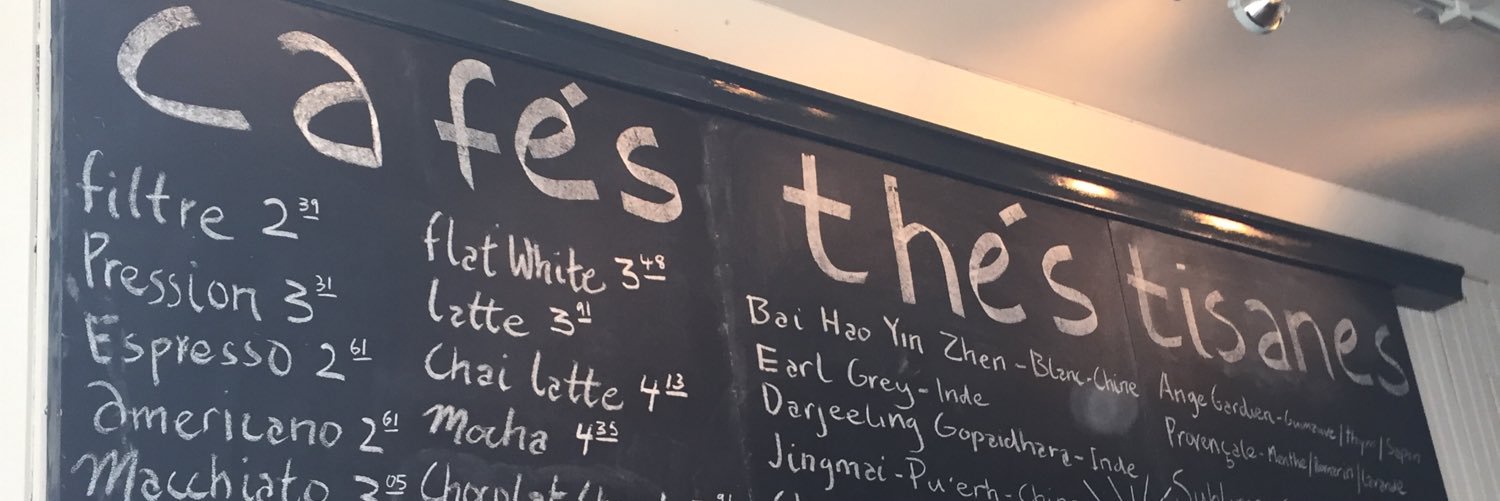 Cafés
filtre 2 39
Pression 3 31
Espresso 2 61
americano 2 61
Macchiato 3 05
flat White 3 48
latte 3 91
Chai latte 4 13
Mocha 4 35
Chocolat
thés
Bai Hao Yin Zhen - Blanc - Chine
Earl Grey - Inde
Darjeeling Gopaidhara - Inde
Jingmai - Pu'erh - Chine
tisanes
Ange Gardien - Guimauve / Thym / Sapin
Provençale - Menthe / Romarin / Lavande